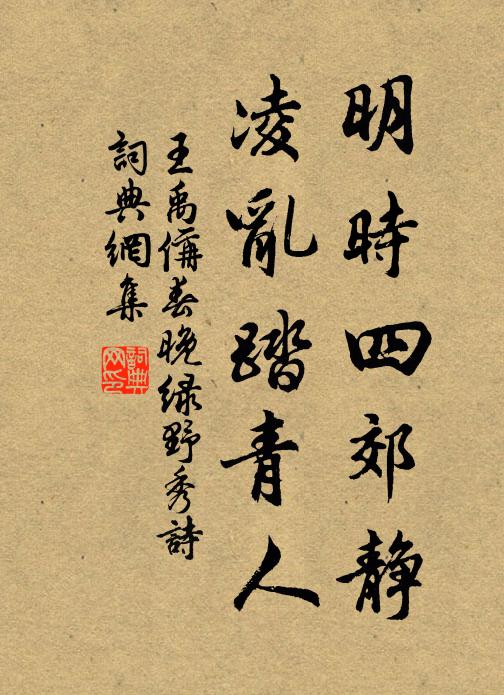 明時四郊静
凌亂踏青人
王禹偁春晚綠野秀詩
詞典網集
詞典網印